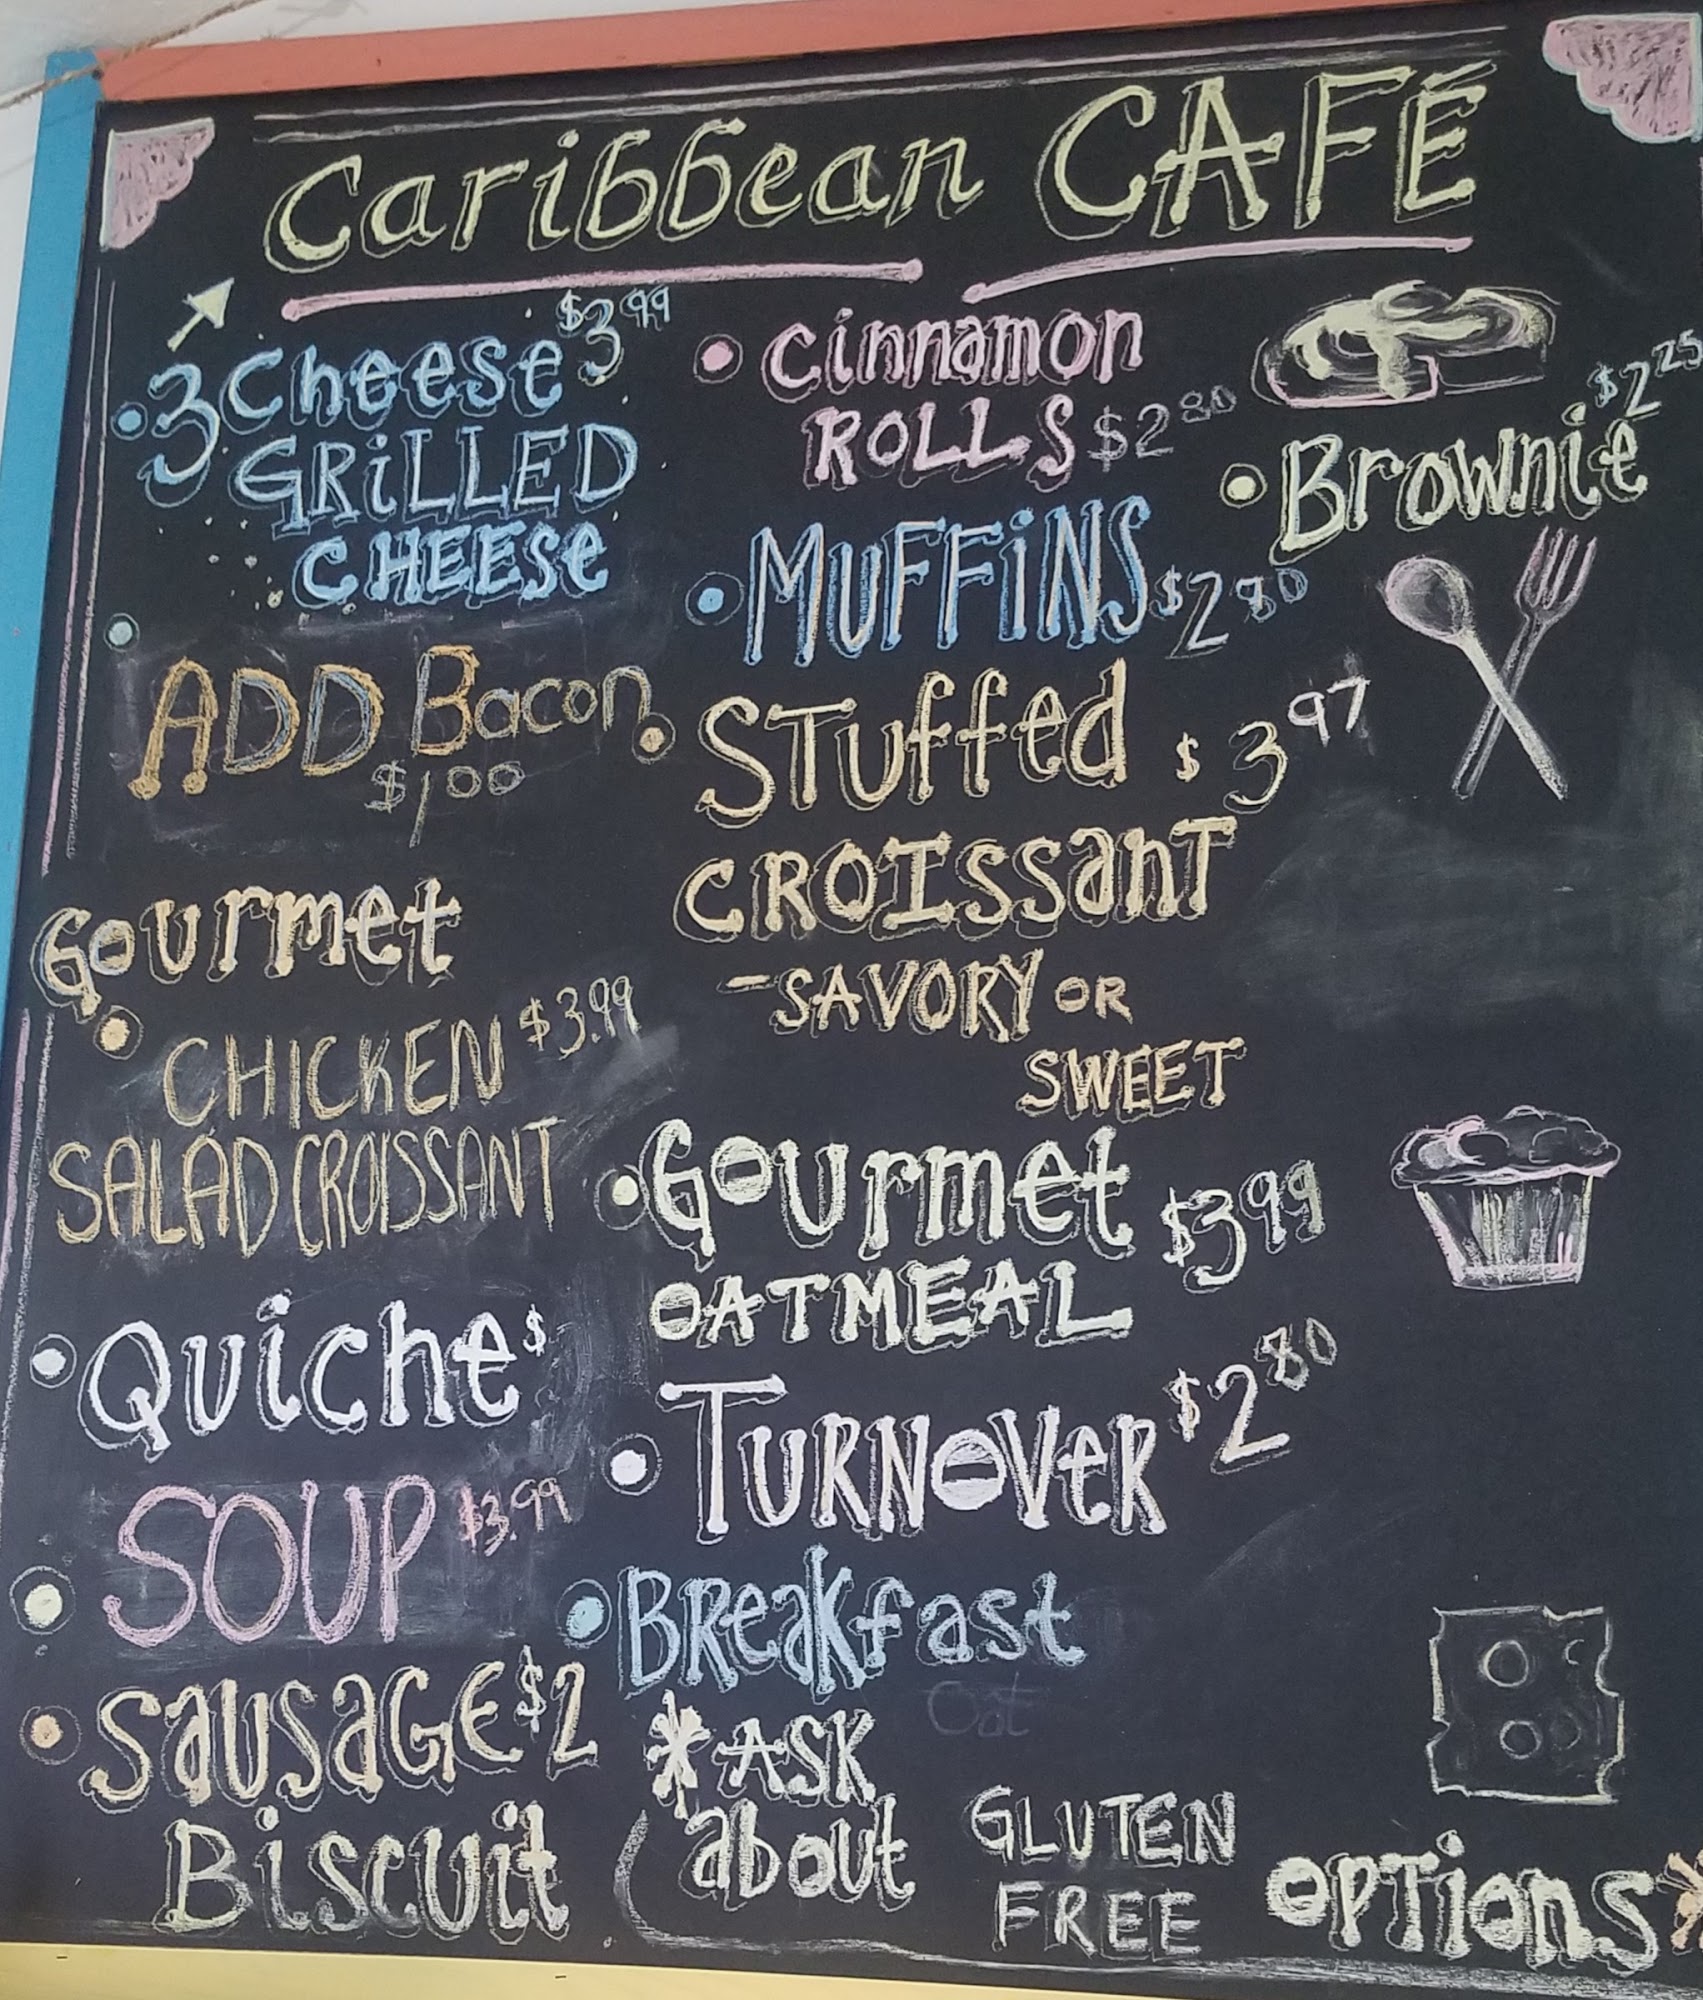 Caribbean CAFÉ
3 Cheese $3.99
GRiLLED
CHEESE
ADD Bacon
$1.00
Gourmet
CHICKEN $3.99
SALAD CROISSANT
Quiche $
SOUP $3.99
Sausage $2
Biscuit
Cinnamon
ROLLS $2.80
MUFFiNS $2.80
STuffed $3.97
CROISSanT
- SAVORY OR
SWEET
Gourmet $3.99
OATMEAL
TURNOVER $2.80
Breakfast
Oat
*ASK
about GLUTEN
FREE OPTiOnS*
$2.25
Brownie